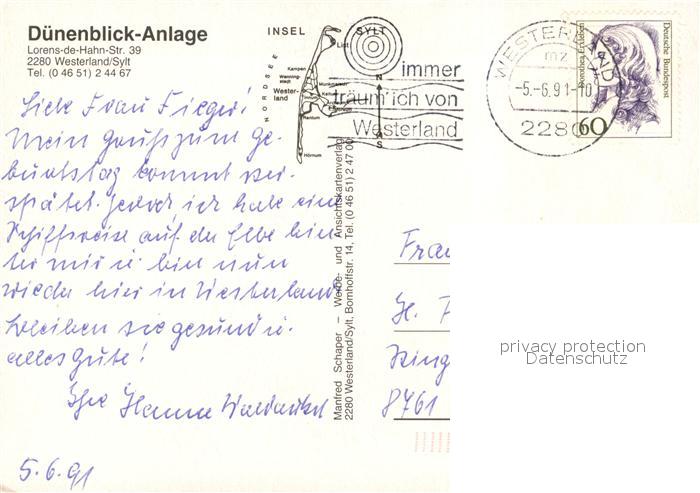 Dünenblick-Anlage
Lorens-de-Hahn-Str. 39
2280 Westerland/Sylt
Tel. (0 46 51) 2 44 67
INSEL SYLT
NORDSEE
List
Kampen
Wenning-
stedt
Wester-
land
Hörnum
N
S
immer
träum ich von
Westerland
WESTERLAND
mz
-5.-6.91-10
2280
Deutsche Bundespost
60
Liebe Frau Fieger!
Mein Gruß zum Ge-
burtstag kommt ver-
spätet. Jedoch ich habe eine
Schiffsreise auf der Elbe hin-
ter mir u. bin nun
wieder hier in Westerland.
Bleiben sie gesund u.
alles Gute!
Ihre Hanna
5.6.91
Manfred Schaper – Werbe- und Ansichtskartenverlag
2280 Westerland/Sylt, Bomhoffstr. 14, Tel. (0 46 51) 2 47 00
Frau
8761
privacy protection
Datenschutz